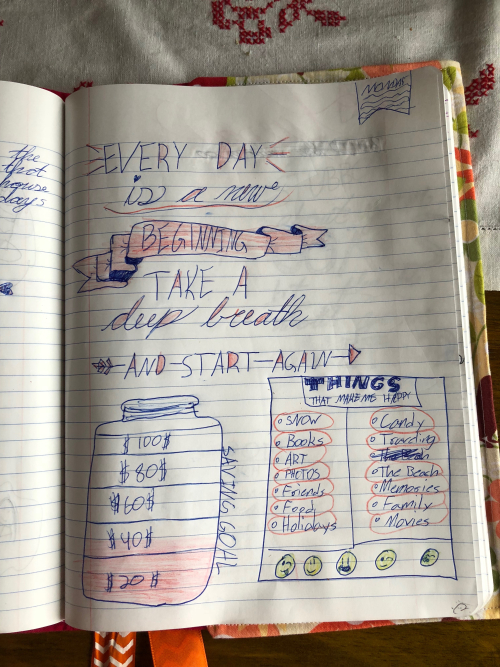 the
that
house
days
EVERY DAY
is a new
BEGINNING
TAKE A
deep breath
AND START AGAIN
THINGS
THAT MAKE ME HAPPY
SNOW
Books
ART
PHOTOS
Friends
Food
Holidays
Candy
Traveling
The Beach
Memories
Family
Movies
$100$
$80$
$60$
$40$
$20$
SAVING GOAL